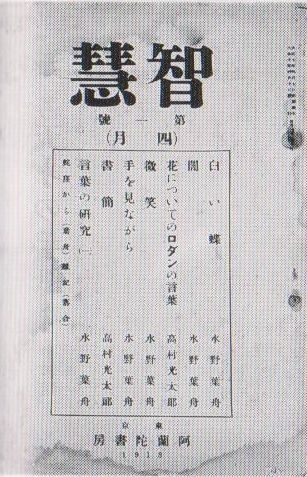 智慧
第一號
(四月)
白い蝶 水野葉舟
闇 水野葉舟
花についてのロダンの言葉 高村光太郎
微笑 水野葉舟
手を見ながら 水野葉舟
書簡 高村光太郎
言葉の研究(一) 水野葉舟
東京
阿蘭陀書房
1919